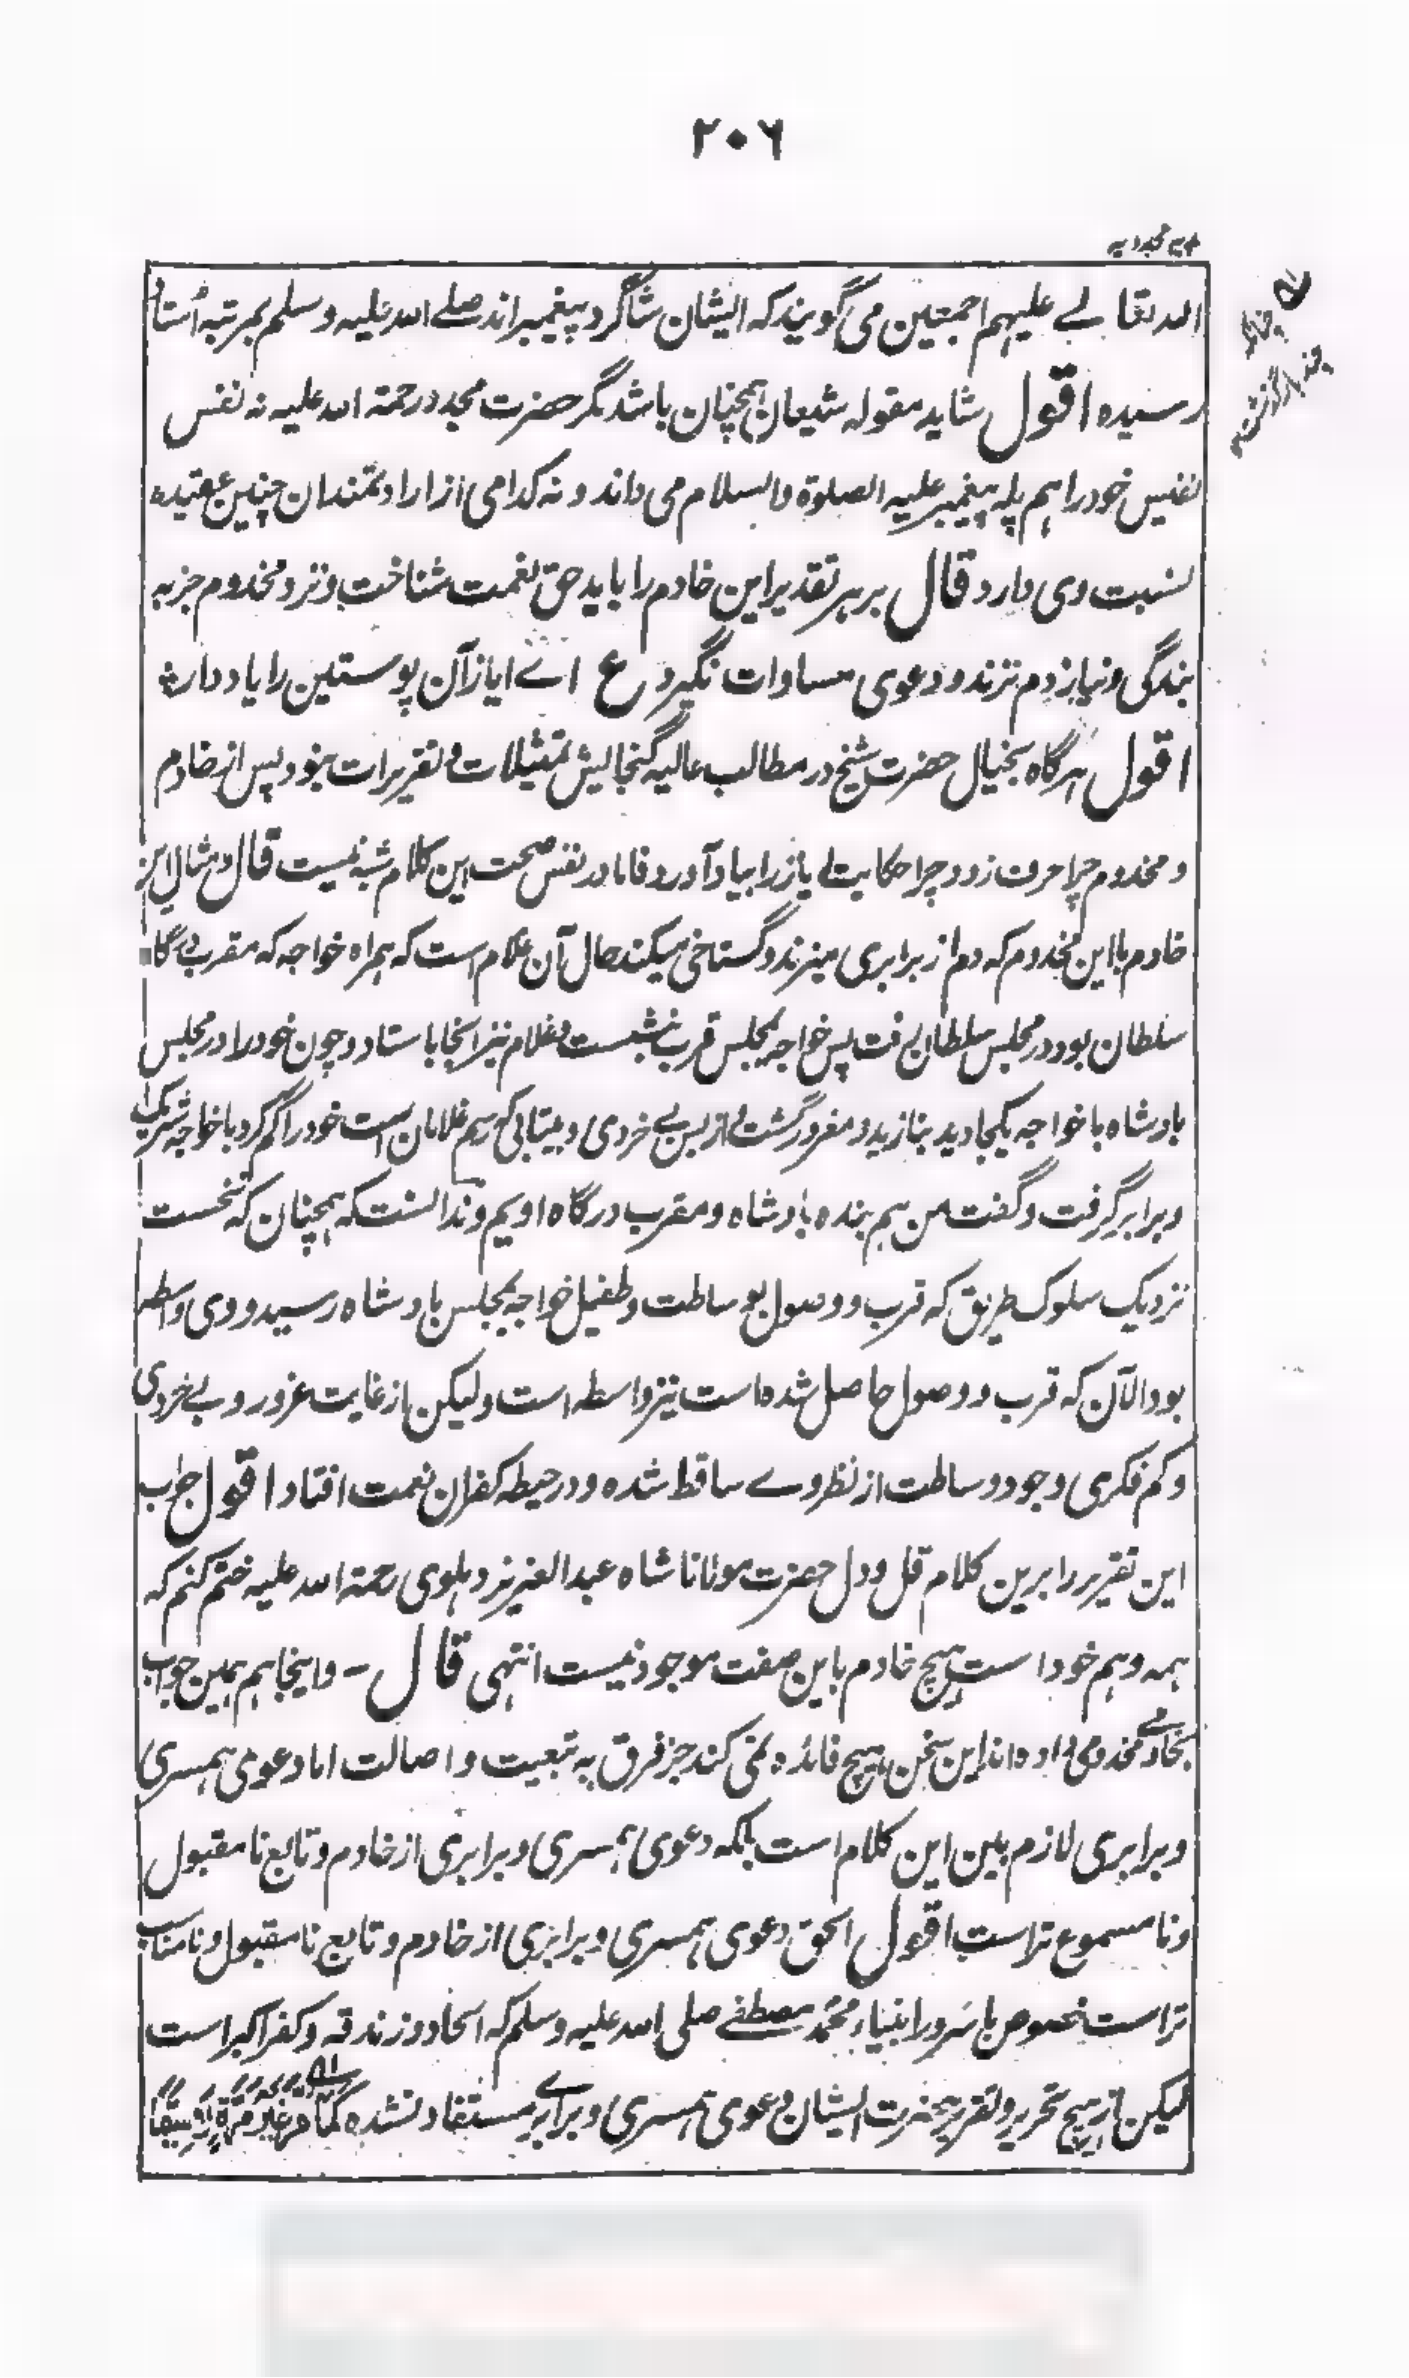 ۲۰۶
ہدیہ مجددیہ
اللہ تعالے علیہم اجمعین می گویند کہ ایشان شاگرد پیغمبر اند صلے اللہ علیہ وسلم بمرتبہ اُستاد
رسیدہ اقول شاید مقولہ شیعان ہمچنان باشد مگر حضرت مجدد رحمۃ اللہ علیہ نہ نفس
نفیس خود را ہم پلہ پیغمبر علیہ الصلوۃ والسلام می داند و نہ کدامی از ارادتمندان چنین عقیدہ
نسبت وی دارد قال بر ہر تقدیر این خادم را باید حق نعمت شناخت و نزد مخدوم جز بہ
بندگی و نیاز دم نزند و دعوی مساوات نگیرد ع اے ایاز آن پوستین را یاد دار
اقول ہرگاہ بخیال حضرت شیخ در مطالب عالیہ گنجایش تمثیلات و تقریرات نبود پس از خادم
و مخدوم چرا حرف زد و چرا حکایت ایاز را بیاد آورد فاما در نفس صحت این کلام شبہ نیست قال و مثال این
خادم با این مخدوم کہ دم از برابری میزند و گستاخی میکند حال آن غلام است کہ ہمراہ خواجہ کہ مقرب درگاہ
سلطان بود در مجلس سلطان برفت پس خواجہ بمجلس قرب بنشست و غلام نیز آنجا باستاد و چون خود را در مجلس
بادشاہ با خواجہ یکجا دید بنازید و مغرور گشت از بس بے خردی و بیتابی کہ رسم غلامان است خود را گم کرد با خواجہ شریک
و برابر گرفت و گفت من ہم بندہ بادشاہ و مقرب درگاہ اویم و ندانست کہ ہمچنان کہ نخست
نزدیک سلوک طریق کہ قرب و وصول بوساطت و طفیل خواجہ بمجلس بادشاہ رسید و وی واسطہ
بود الآن کہ قرب و وصول حاصل شدہ است نیز واسطہ است و لیکن از غایت غرور و بے خردی
و کم فکری وجود وساطت از نظر وے ساقط شدہ و در حیطہ کفران نعمت افتاد اقول جواب
این تقریر را برین کلام قل و دل حضرت مولانا شاہ عبد العزیز دہلوی رحمۃ اللہ علیہ ختم کنم کہ
ہمہ وہم خود است ہیچ خادم باین صفت موجود نیست انتہی قال - و اینجا ہم ہمین جواب
بخادمے مخدومی دادہ اند این سخن ہیچ فائدہ نمی کند جز فرق بہ تبعیت و اصالت اما دعوی ہمسری
و برابری لازم بین این کلام است بلکہ دعوی ہمسری و برابری از خادم و تابع نامقبول
و نامسموع تر است اقول الحق دعوی ہمسری و برابری از خادم و تابع نامقبول و نامناسب
تر است خصوص با سرور انبیاء محمد مصطفے صلی اللہ علیہ وسلم کہ الحاد و زندقہ و کفر اکبر است
لیکن از ہیچ تحریر و تقریر حضرت ایشان دعوی ہمسری و برابری مستفاد نشدہ کما مر غیر مرۃ